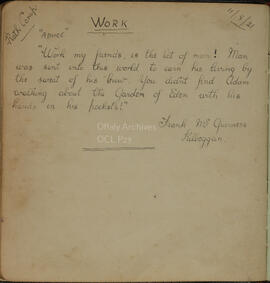 Rath Camp
WORK
11/8/21
"Work my friends, is the lot of man! Man
was sent into this world to earn his living by
the sweat of his brow. You didn't find Adam
walking about the Garden of Eden with his
hands in his pockets!"
Frank Mc Guinness
Kilbeggan.
Offaly Archives
OCL P29